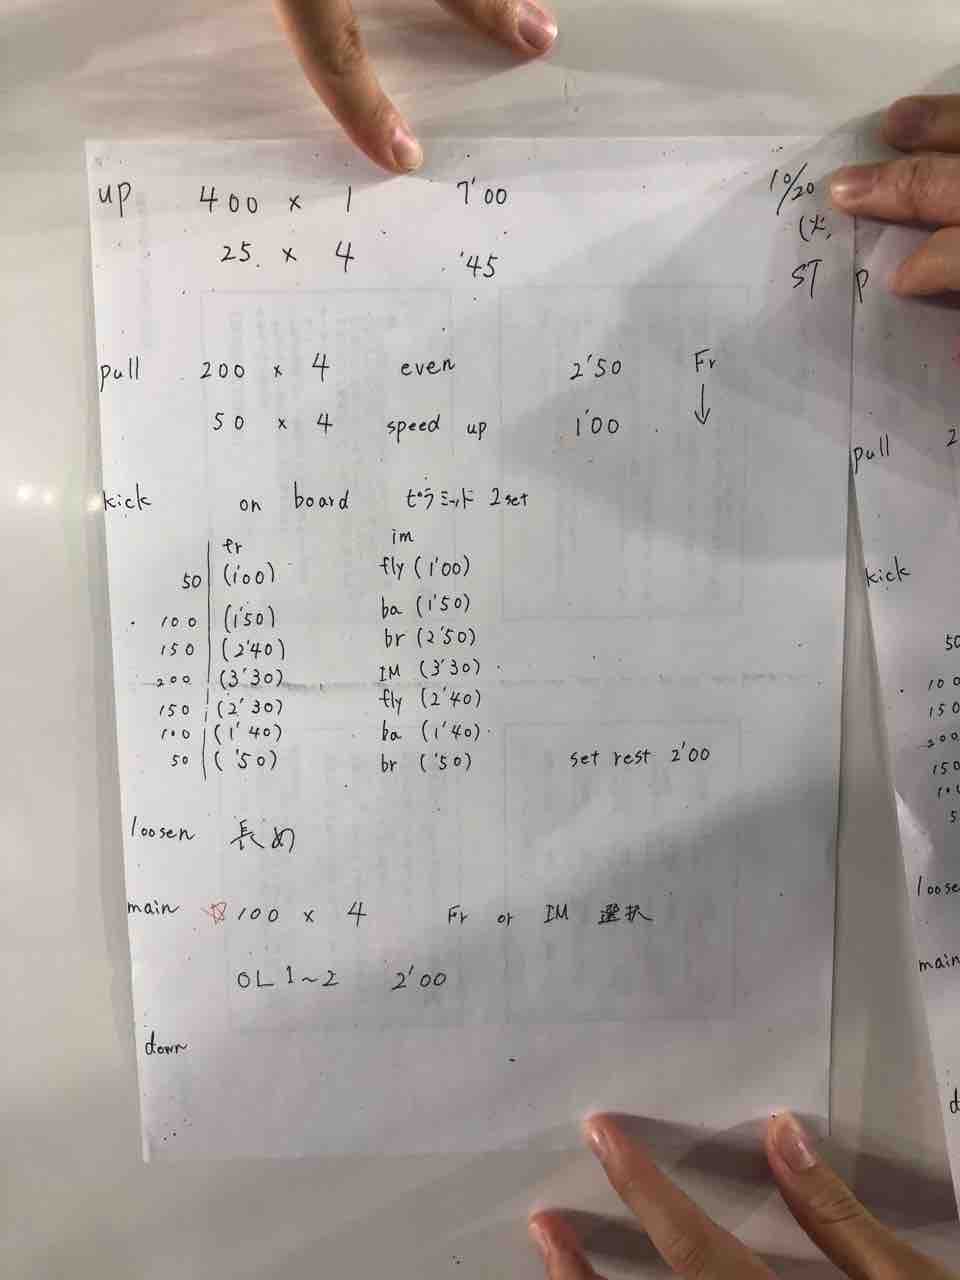 up 400 × 1 7'00 10/20
25. × 4 '45 (火)
ST
pull 200 × 4 even 2'50 Fr
50 × 4 speed up 1'00 ↓
kick on board ピラミッド 2set
fr im
50 (1'00) fly (1'00)
100 (1'50) ba (1'50)
150 (2'40) br (2'50)
200 (3'30) IM (3'30)
150 (2'30) fly (2'40)
100 (1'40) ba (1'40)
50 ('50) br ('50) set rest 2'00
loosen 長め
main ☆ 100 × 4 Fr or IM 選択
OL 1~2 2'00
down
pull 2
kick
50
100
150
200
150
100
5
loose
main
d